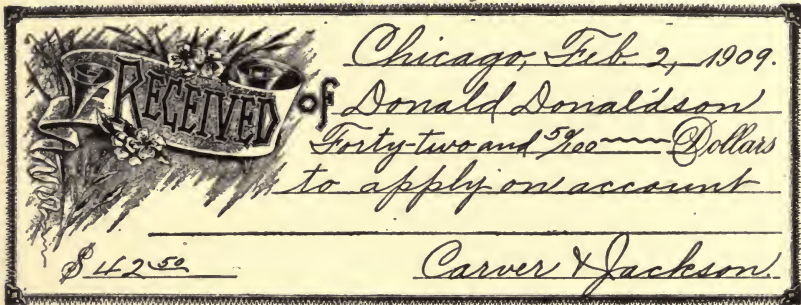 Chicago, Feb. 2, 1909.
RECEIVED of Donald Donaldson
Forty-two and 50/100 Dollars
to apply on account
$42.50 Carver & Jackson.